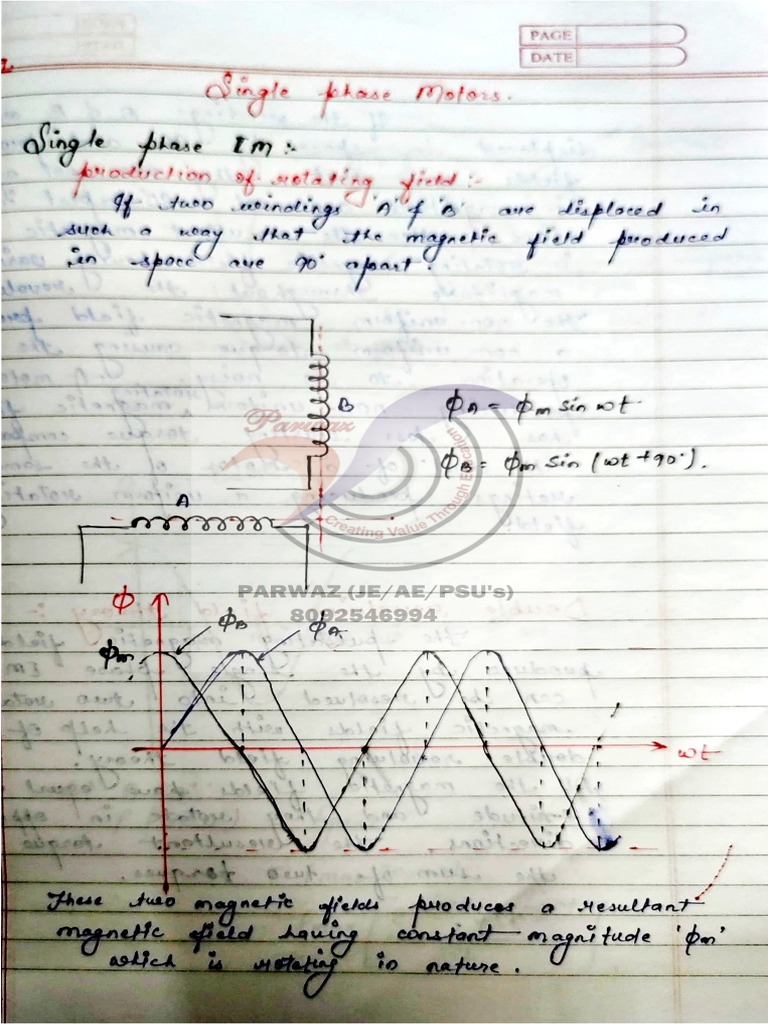 PAGE
DATE
Single phase Motors.
Single phase IM :-
production of rotating field :-
If two windings 'A' & 'B' are displaced in
such a way that the magnetic field produced
in space are 90° apart.
B
ϕA = ϕm sin wt.
Parwaz
ϕB = ϕm sin (wt + 90°).
A
Creating Value Through Education
PARWAZ (JE/AE/PSU's)
8092546994
ϕ
ϕB
ϕA
ϕm
wt
These two magnetic fields produces a resultant
magnetic field having constant magnitude 'ϕm'
which is rotating in nature.